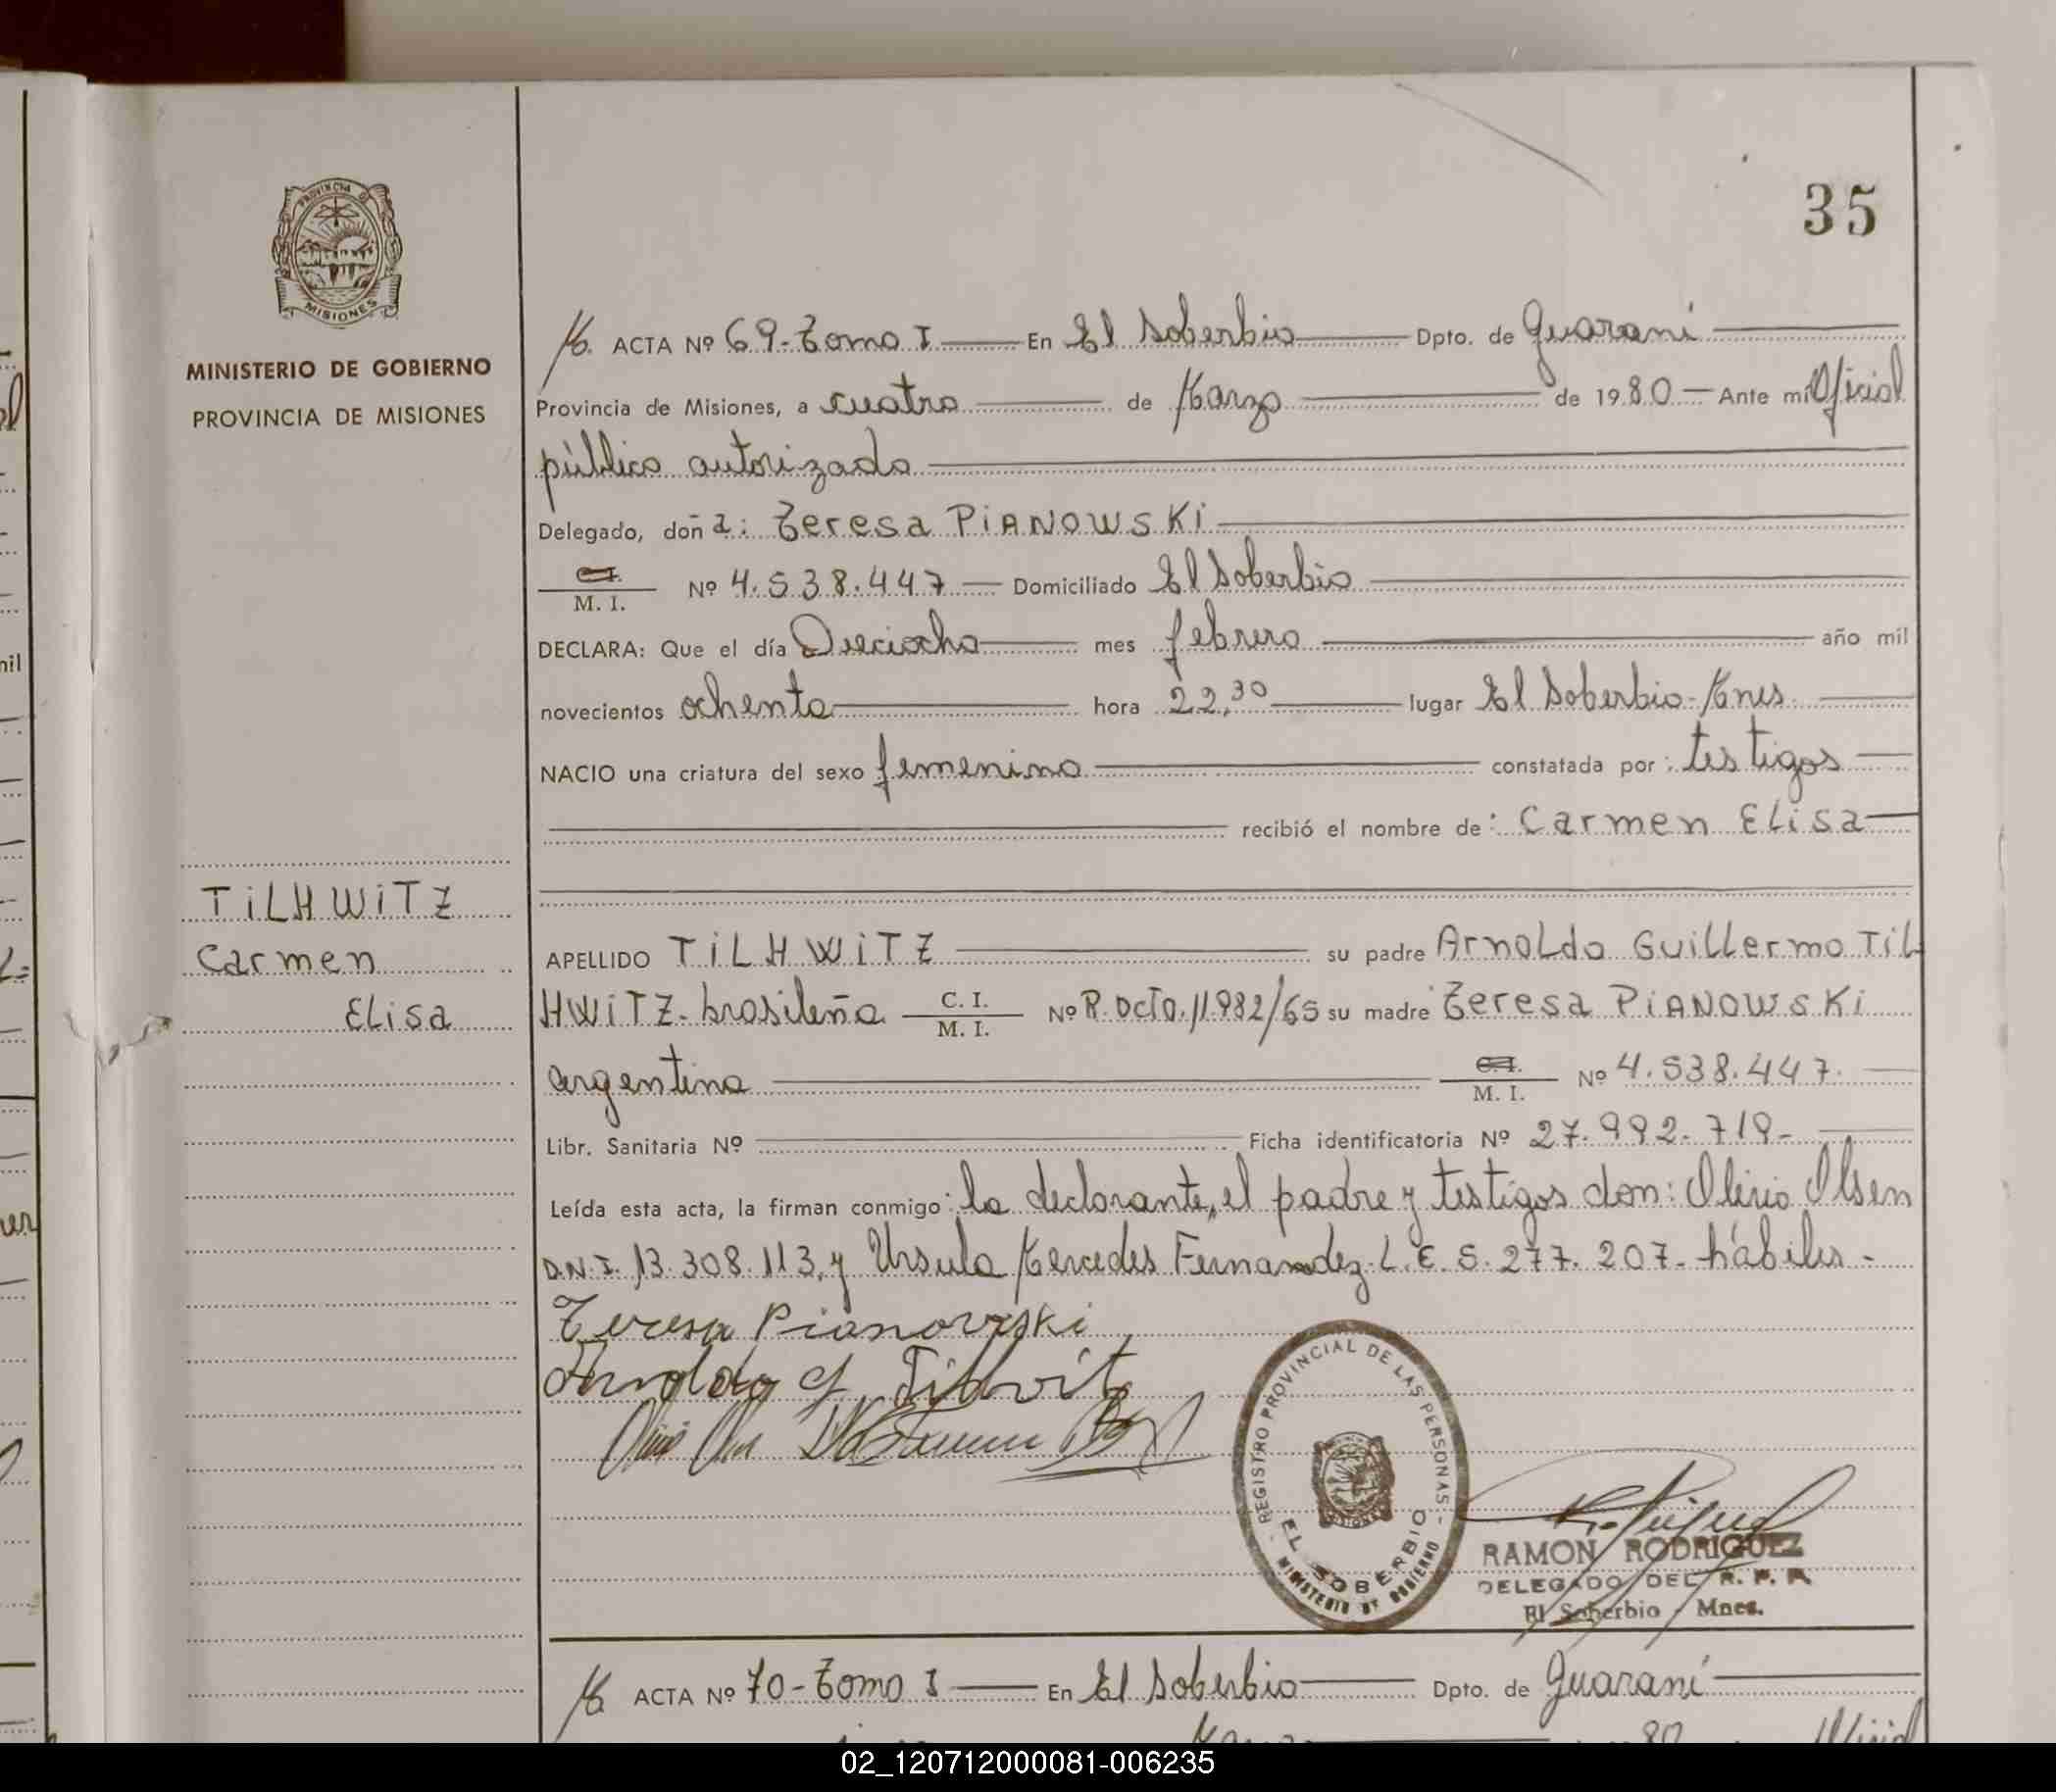 35
PROVINCIA DE
MISIONES
MINISTERIO DE GOBIERNO
PROVINCIA DE MISIONES
ACTA Nº 69-Tomo I En El Soberbio Dpto. de Guaraní
Provincia de Misiones, a cuatro de Marzo de 1980 Ante mi Oficial
público autorizado
Delegado, doña: Teresa PiANOWSKi
C.I.
M. I. Nº 4.538.447 Domiciliado El Soberbio
DECLARA: Que el día Dieciocho mes febrero año mil
novecientos ochenta hora 22,30 lugar El Soberbio-Mnes.
NACIO una criatura del sexo femenino constatada por: testigos
recibió el nombre de: Carmen ELisa
TiLHWiTZ
Carmen
ELisa
APELLIDO TiLHWiTZ su padre ArnoLdo GuiLLermo TiL
HWiTZ-brasileña C. I.
M. I. Nº R.Dcto.11.982/65 su madre Teresa PiANOWSKi
argentina C.I.
M. I. Nº 4.538.447.
Libr. Sanitaria Nº Ficha identificatoria Nº 27.992.719-
Leída esta acta, la firman conmigo: la declarante, el padre y testigos don: Olirio Olsen
D.N.I. 13.308.113, y Ursula Mercedes Fernandez-L.C. 5.277.207- hábiles-
Teresa Pianovski
Arnoldo G. Tilhvitz
REGISTRO PROVINCIAL DE LAS PERSONAS
EL SOBERBIO
MINISTERIO DE GOBIERNO
RAMON RODRIGUEZ
DELEGADO DEL R. P. P.
El Soberbio - Mnes.
ACTA Nº 70-Tomo I En El Soberbio Dpto. de Guaraní
02_120712000081-006235